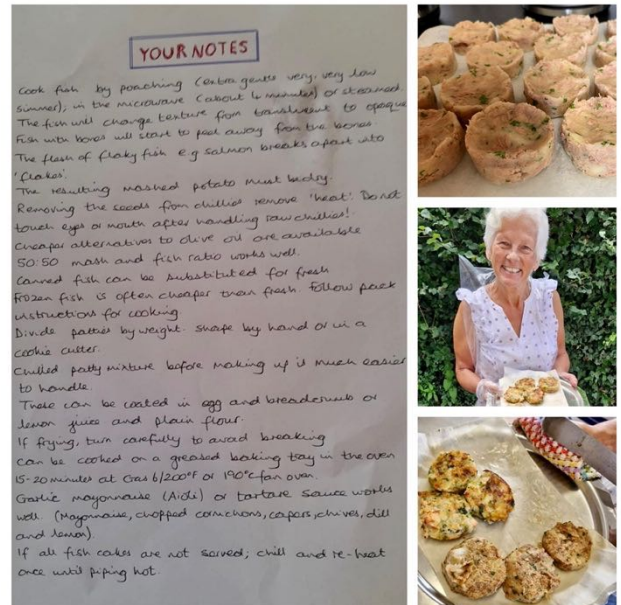 YOUR NOTES
Cook fish by poaching (extra gentle very, very low
simmer); in the microwave (about 4 minutes) or steamed.
The fish will change texture from translucent to opaque
Fish with bones will start to peel away from the bones.
The flesh of flaky fish e.g salmon breaks apart into
'flakes'.
The resulting mashed potato must be dry.
Removing the seeds from chillies remove 'heat'. Do not
touch eyes or mouth after handling raw chillies!
Cheaper alternatives to olive oil are available
50:50 mash and fish ratio works well.
Canned fish can be substituted for fresh
Frozen fish is often cheaper than fresh. Follow pack
instructions for cooking.
Divide patties by weight. Shape by hand or in a
cookie cutter.
Chilled patty mixture before making up is much easier
to handle.
These can be coated in egg and breadcrumb or
lemon juice and plain flour.
If frying, turn carefully to avoid breaking
Can be cooked on a greased baking tray in the oven
15-20 minutes at Gas 6/200°F or 190°C fan oven.
Garlic mayonnaise (Aioli) or tartare sauce works
well. (Mayonnaise, chopped cornichons, capers, chives, dill
and lemon).
If all fish cakes are not served; chill and re-heat
once until piping hot.